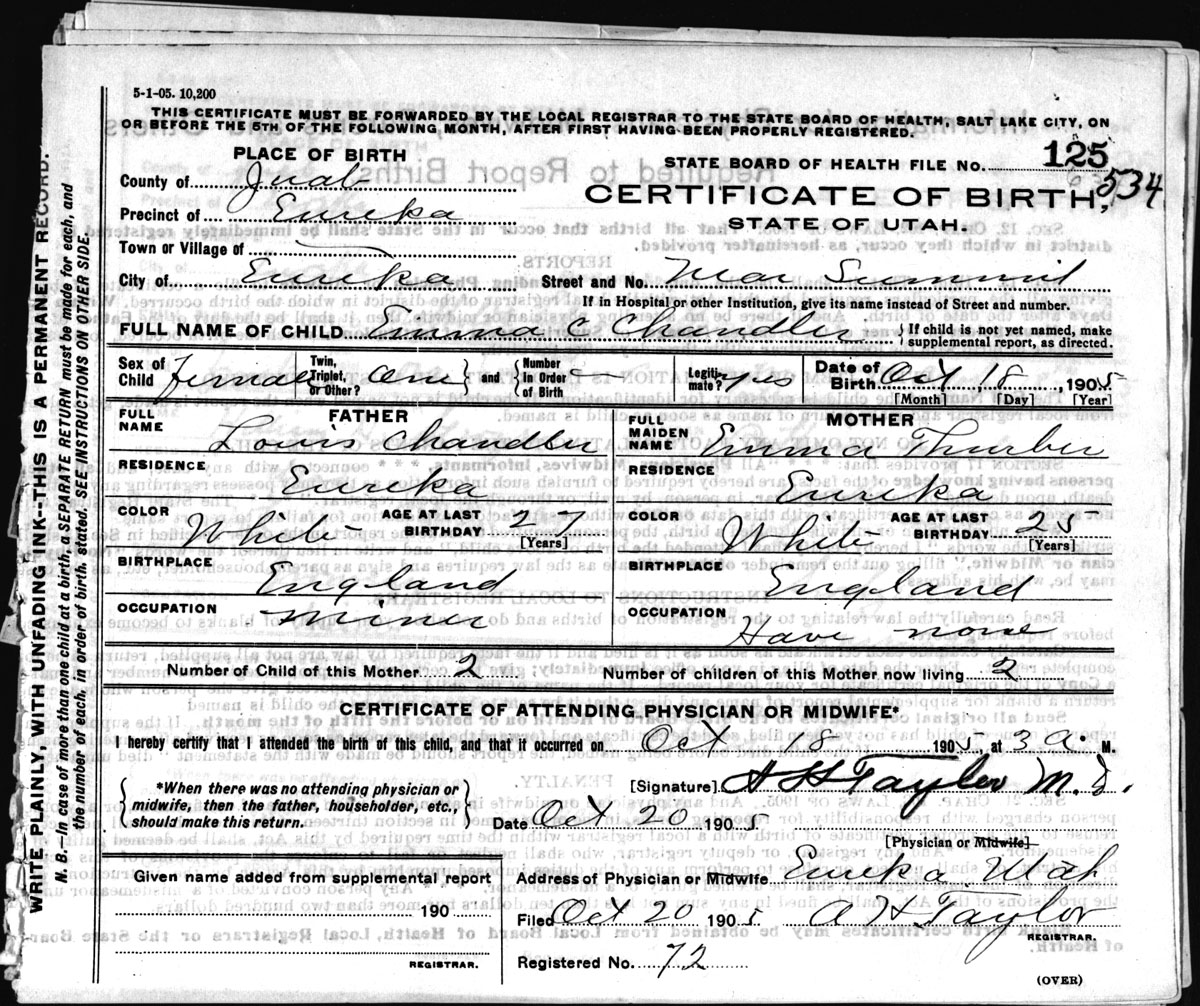 5-1-05. 10,200
THIS CERTIFICATE MUST BE FORWARDED BY THE LOCAL REGISTRAR TO THE STATE BOARD OF HEALTH, SALT LAKE CITY, ON
OR BEFORE THE 5TH OF THE FOLLOWING MONTH, AFTER FIRST HAVING BEEN PROPERLY REGISTERED.
PLACE OF BIRTH
STATE BOARD OF HEALTH FILE No. 125
534
County of Juab
CERTIFICATE OF BIRTH,
Precinct of Eureka
STATE OF UTAH.
Town or Village of
City of Eureka Street and No. Near Summit
If in Hospital or other Institution, give its name instead of Street and number.
FULL NAME OF CHILD Emma C Chandler { If child is not yet named, make
supplemental report, as directed.
Sex of Child Female Twin, Triplet, or Other? One } and { Number in Order of Birth — Legiti-mate? yes Date of Birth Oct 18, 1905
[Month] [Day] [Year]
FATHER
FULL NAME Louis Chandler
RESIDENCE Eureka
COLOR White AGE AT LAST BIRTHDAY 27
[Years]
BIRTHPLACE England
OCCUPATION Miner
MOTHER
FULL MAIDEN NAME Emma Thurber
RESIDENCE Eureka
COLOR White AGE AT LAST BIRTHDAY 25
[Years]
BIRTHPLACE England
OCCUPATION Have none
Number of Child of this Mother 2 Number of children of this Mother now living 2
CERTIFICATE OF ATTENDING PHYSICIAN OR MIDWIFE*
I hereby certify that I attended the birth of this child, and that it occurred on Oct 18 1905, at 3 a. M.
{ *When there was no attending physician or
midwife, then the father, householder, etc.,
should make this return. }
[Signature] A H Taylor M.D.
Date Oct 20 1905
[Physician or Midwife]
Given name added from supplemental report
190
REGISTRAR.
Address of Physician or Midwife Eureka Utah
Filed Oct 20 1905 A H Taylor
REGISTRAR.
Registered No. 72
(OVER)
WRITE PLAINLY WITH UNFADING INK--THIS IS A PERMANENT RECORD.
N. B.--In case of more than one child at a birth, a SEPARATE RETURN must be made for each, and
the number of each, in order of birth, stated. SEE INSTRUCTIONS ON OTHER SIDE.